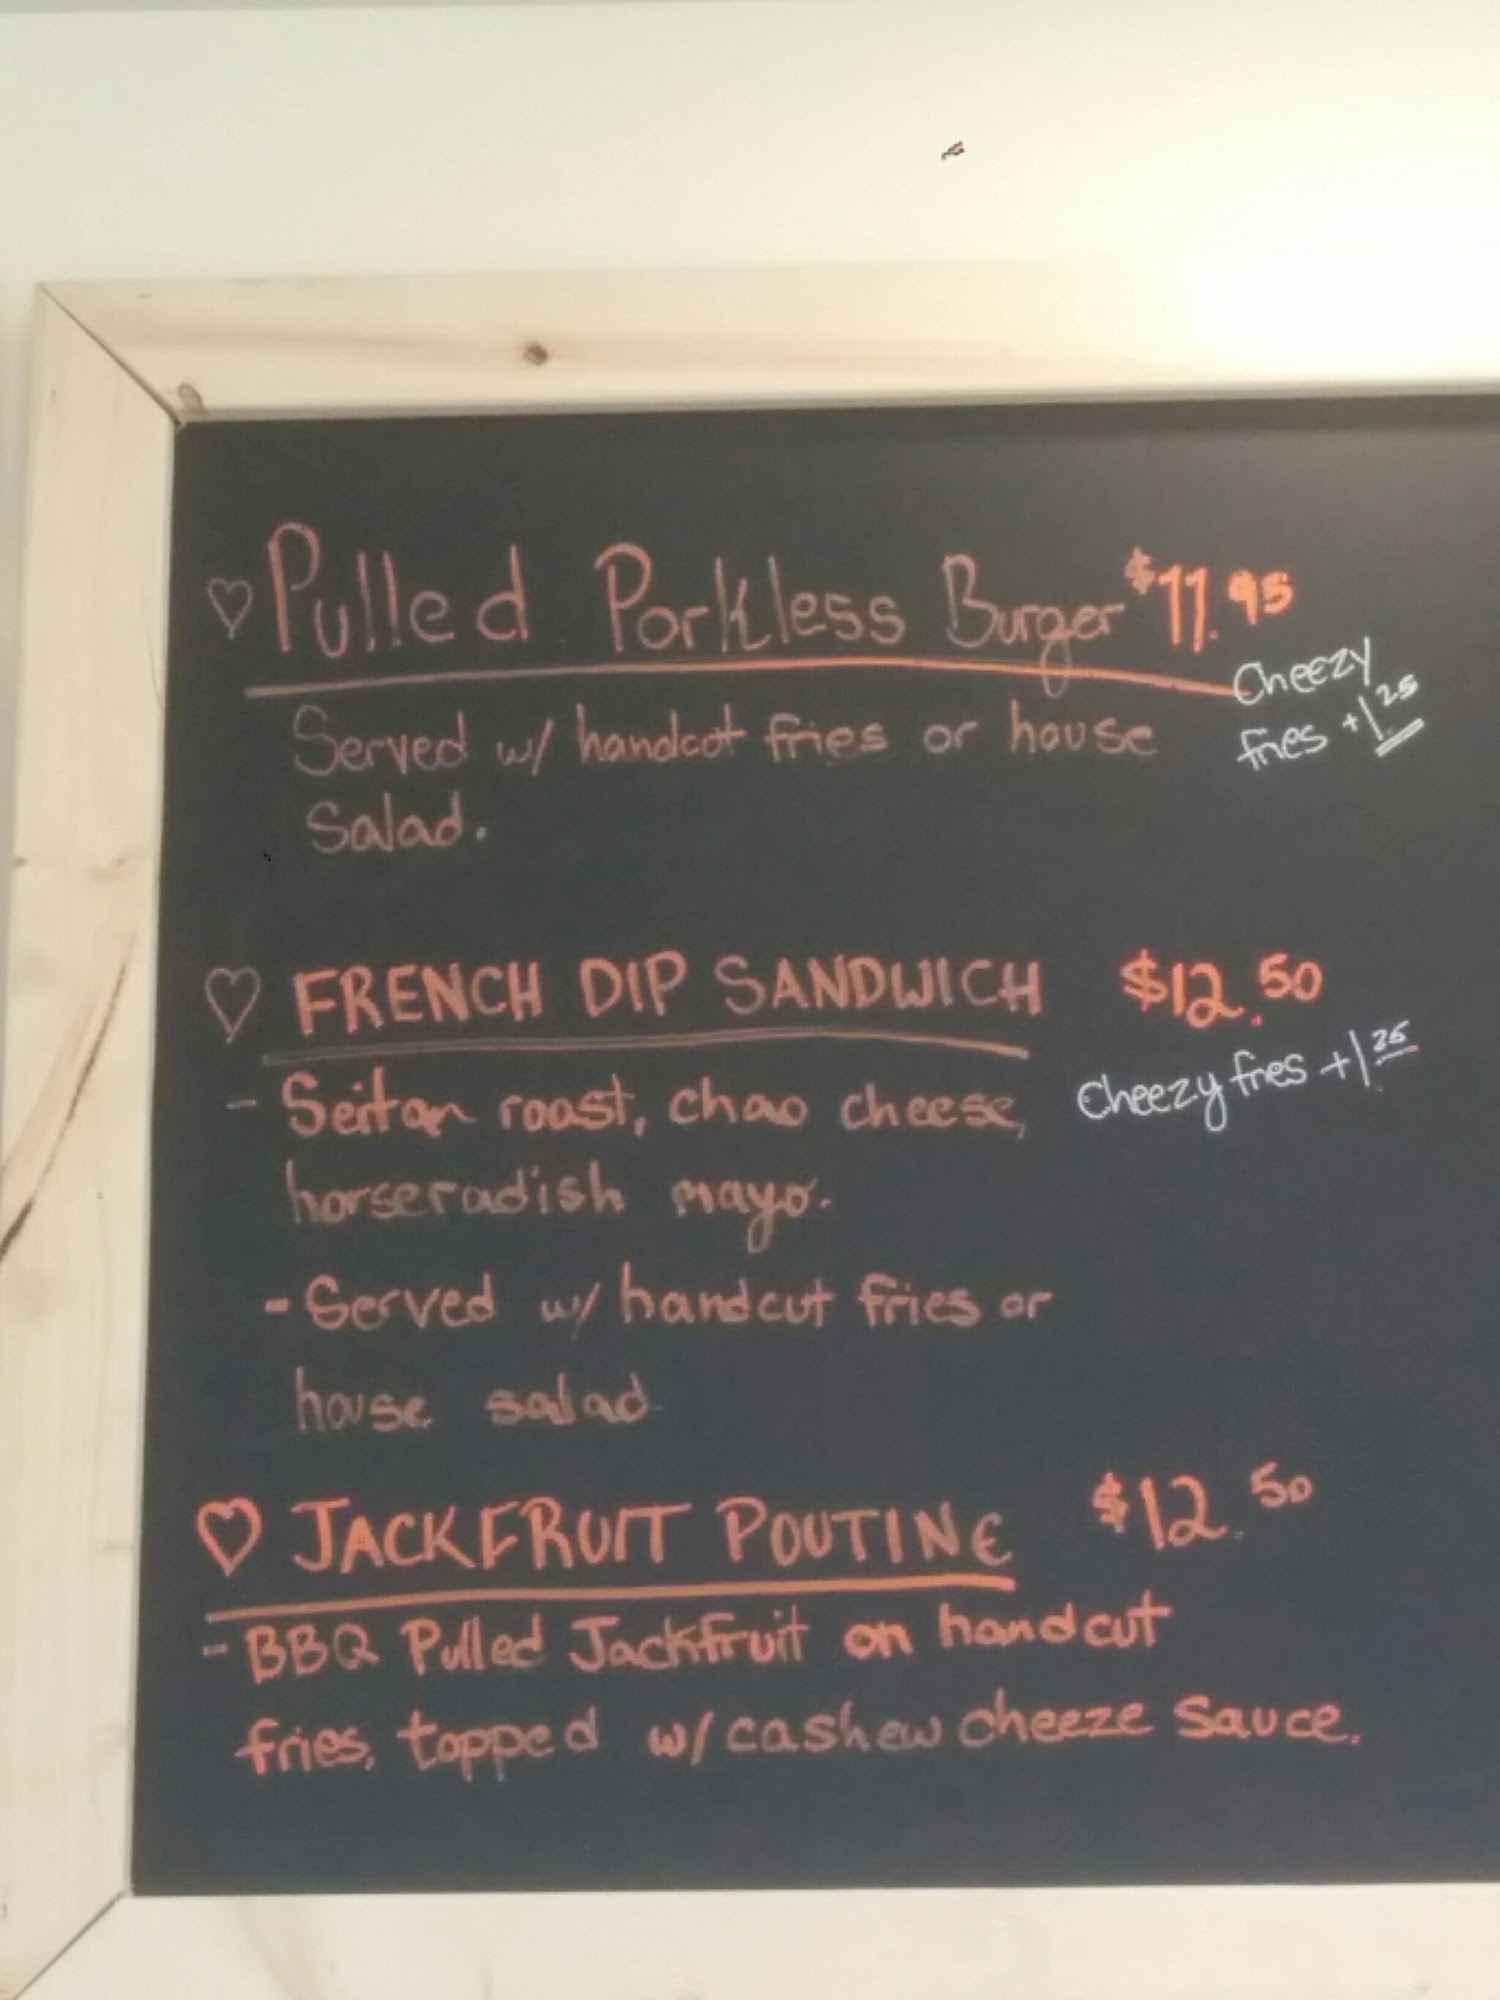 ♡ Pulled Porkless Burger $11.95
Cheezy
fries +1.25
Served w/ handcut fries or house
Salad.
♡ FRENCH DIP SANDWICH $12.50
Cheezy fries +1.25
- Seitan roast, chao cheese,
horseradish mayo.
- Served w/ handcut fries or
house salad
♡ JACKFRUIT POUTINE $12.50
- BBQ Pulled Jackfruit on handcut
fries, topped w/ cashew cheeze sauce.